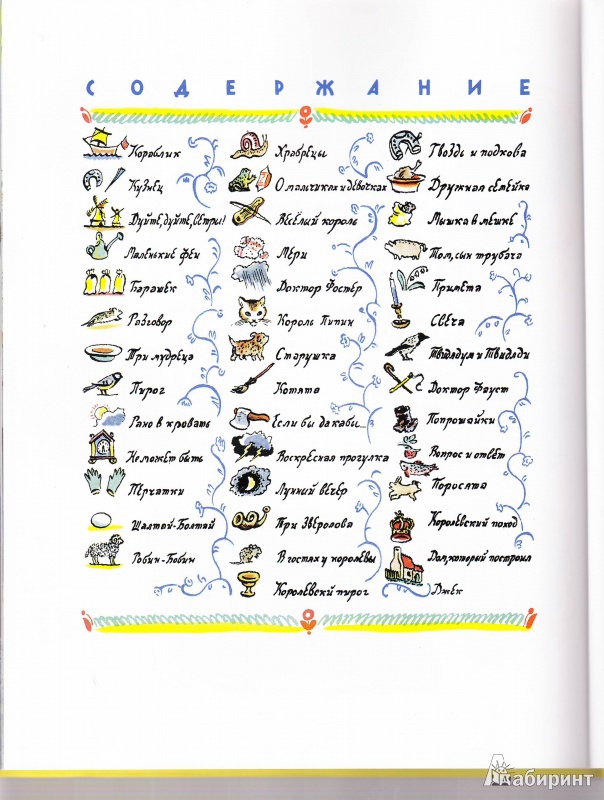 СОДЕРЖАНИЕ
Кораблик
Кузнец
Дуйте, дуйте, ветры!
Маленькие феи
Барашек
Разговор
Три мудреца
Пирог
Рано в кровать
Не может быть
Перчатки
Шалтай-Болтай
Робин-Бобин
Храбрецы
О мальчиках и девочках
Весёлый король
Мери
Доктор Фостер
Король Пипин
Старушка
Котята
Если бы да кабы...
Воскресная прогулка
Лунный вечер
Три Зверолова
В гостях у королевы
Королевски пирог
Гвоздь и подкова
Дружная семейка
Мышка в мешке
Том, сын трубача
Примета
Свеча
Твидлдум и Твидлди
Доктор Фауст
Попрошайки
Вопрос и ответ
Поросята
Королевский поход
Дом, который построил
Джек
Лабиринт